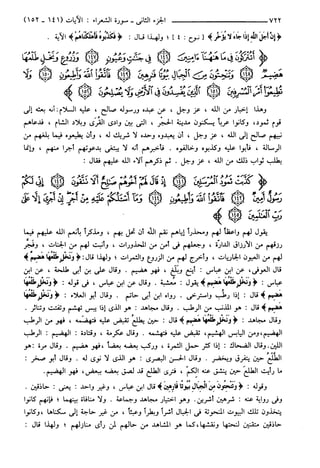 ٧٢٢ ــــ الجزء الثانى - سورة الشعراء : الآيات (١٤١ - ١٥٢)
﴿إِنَّ أَجَلَ اللَّهِ إِذَا جَاءَ لا يُؤَخَّرُ﴾ [نوح : ٤] ؛ ولهذا قال : ﴿فَكَذَّبُوهُ فَأَهْلَكْنَاهُمْ﴾ الآية .
أَتُتْرَكُونَ فِي مَا هَاهُنَا آمِنِينَ فِي جَنَّاتٍ وَعُيُونٍ وَزُرُوعٍ وَنَخْلٍ طَلْعُهَا
هَضِيمٌ وَتَنْحِتُونَ مِنَ الْجِبَالِ بُيُوتًا فَارِهِينَ فَاتَّقُوا اللَّهَ وَأَطِيعُونِ
وهذا إخبار من الله ، عز وجل ، عن عبده ورسوله صالح ، عليه السلام: أنه بعثه إلى
قوم ثمود، وكانوا عربًا يسكنون مدينة الحجْر ، التى بين وادى القُرَى وبلاد الشام ، فدعاهم
نبيهم صالح إلى الله ، عز وجل ، أن يعبدوه وحده لا شريك له ، وأن يطيعوه فيما بلغهم من
الرسالة ، فأبوا عليه وكذبوه وخالفوه . فأخبرهم أنه لا يبتغى بدعوتهم أجرا منهم ، وإنما
يطلب ثواب ذلك من الله ، عز وجل . ثم ذكرهم آلاء الله عليهم فقال :
كَذَّبَتْ ثَمُودُ الْمُرْسَلِينَ إِذْ قَالَ لَهُمْ أَخُوهُمْ صَالِحٌ أَلا تَتَّقُونَ إِنِّي لَكُمْ
رَسُولٌ أَمِينٌ فَاتَّقُوا اللَّهَ وَأَطِيعُونِ وَمَا أَسْأَلُكُمْ عَلَيْهِ مِنْ أَجْرٍ إِنْ أَجْرِيَ إِلا عَلَى
رَبِّ الْعَالَمِينَ
يقول لهم واعظًا لهم ومحذرًا إياهم نقم الله أن تحل بهم ، ومذكرًا بأنعم الله عليهم فيما
رزقهم من الأرزاق الدارة، وجعلهم فى أمن من المحذورات ، وأنبت لهم من الجنات ، وفجَّر
لهم من العيون الجاريات ، وأخرج لهم من الزروع والثمرات ؛ ولهذا قال: ﴿وَنَخْلٍ طَلْعُهَا هَضِيمٌ﴾
قال العوفى، عن ابن عباس : أينع وبَلَغ ، فهو هضيم . وقال على بن أبى طلحة ، عن ابن
عباس : ﴿وَنَخْلٍ طَلْعُهَا هَضِيمٌ﴾ يقول : مُعشبة . وقال عن ابن عباس ، فى قوله : ﴿وَنَخْلٍ طَلْعُهَا
هَضِيمٌ﴾ قال : إذا رطُب واسترخى . رواه ابن أبى حاتم . وقال أبو العلاء : ﴿وَنَخْلٍ طَلْعُهَا
هَضِيمٌ﴾ قال : هو المذنب من الرطب . وقال مجاهد : هو الذى إذا يبس تهشم وتفتت وتناثر .
وقال مجاهد : ﴿وَنَخْلٍ طَلْعُهَا هَضِيمٌ﴾ قال : حين يطلع تقبض عليه فتهضمه ، فهو من الرطب
الهضيم،ومن اليابس الهشيم، تقبض عليه فتهشمه . وقال عكرمة ، وقتادة : الهضيم : الرطب
اللين.وقال الضحاك : إذا كثر حمل الثمرة ، وركب بعضه بعضًا ، فهو هضيم . وقال مرة : هو
الطَّلْعُ حين يتفرق ويخضر . وقال الحسن البصرى : هو الذى لا نوى له . وقال أبو صخر :
ما رأيت الطلع حين ينشق عنه الكِمّ ، فترى الطلع قد لصق بعضه ببعض، فهو الهضيم.
وقوله : ﴿وَتَنْحِتُونَ مِنَ الْجِبَالِ بُيُوتًا فَارِهِينَ﴾ قال ابن عباس ، وغير واحد : يعنى : حاذقين .
وفى رواية عنه : شرهين أشرين. وهو اختيار مجاهد وجماعة . ولا منافاة بينهما ؛ فإنهم كانوا
يتخذون تلك البيوت المنحوتة فى الجبال أشرًا وبطرًا وعبثًا ، من غير حاجة إلى سكناها ،وكانوا
حاذقين متقنين لنحتها ونقشها،كما هو المشاهد من حالهم لمن رأى منازلهم ؛ ولهذا قال :